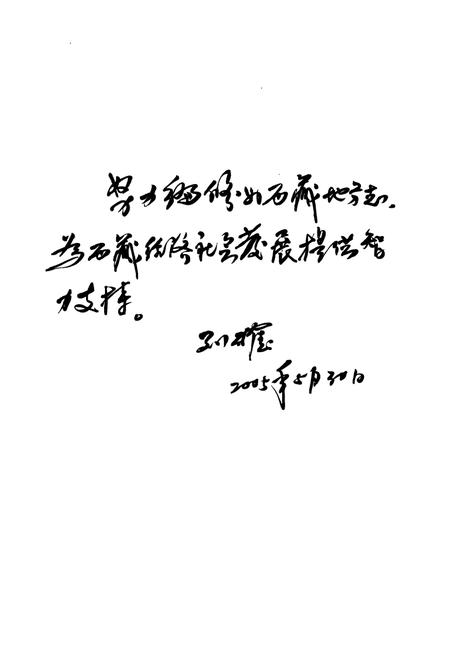 努力编修好西藏地方志,
为西藏经济社会发展提供智
力支撑。
2005年5月30日